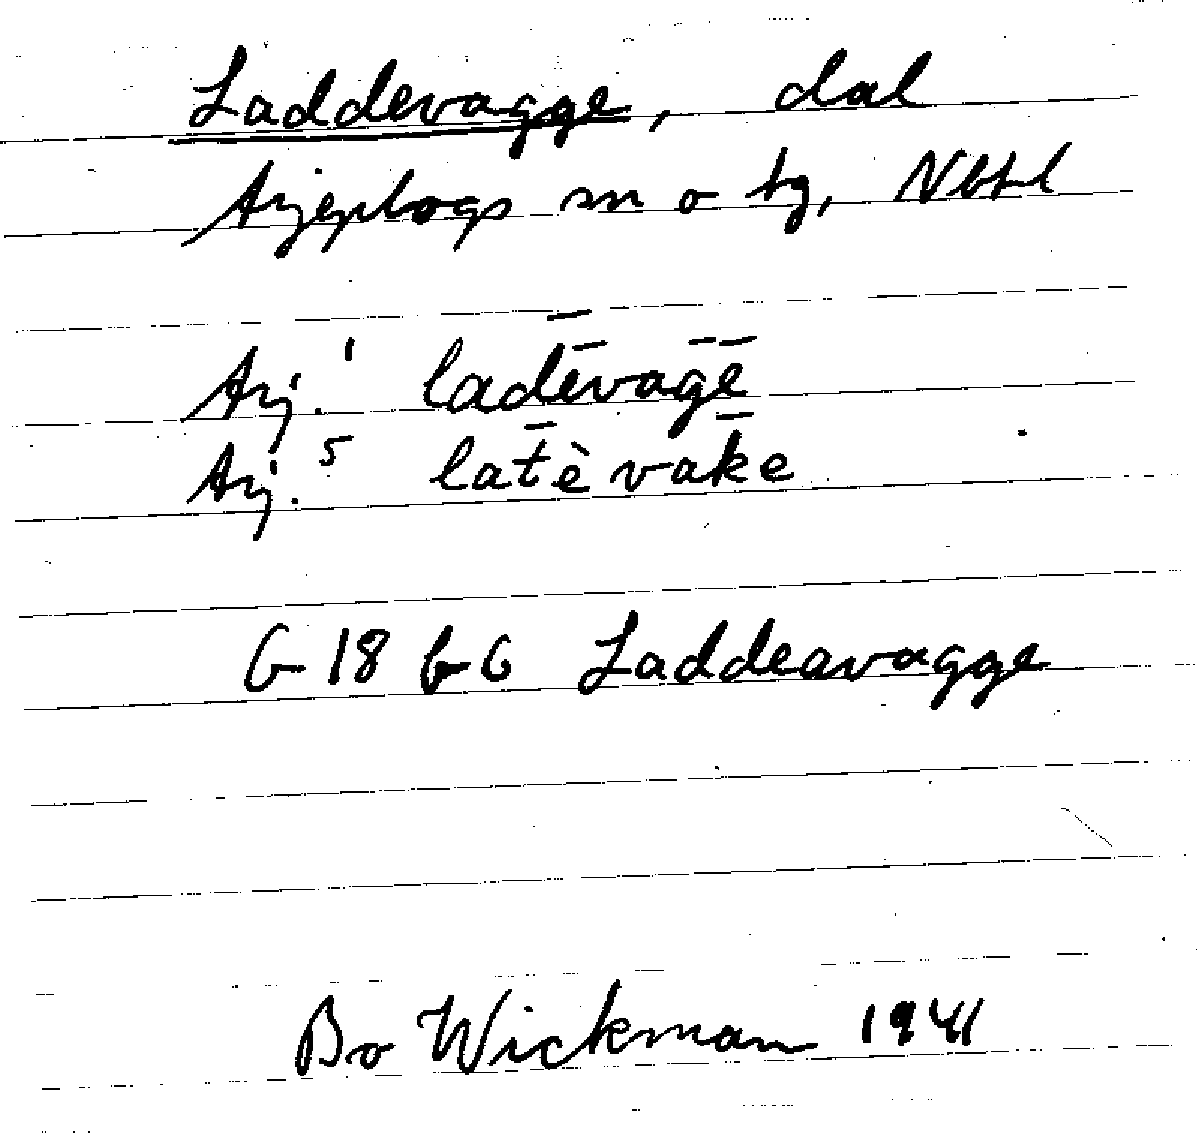 Laddevagge, dal
Arjeplogs sn o tg, Nbtl
Arj.¹ lad̄ēvaḡē
Arj.⁵ lat̄èvak̄e
G 18 b 6 Laddeavagge
Bo Wickman 1941